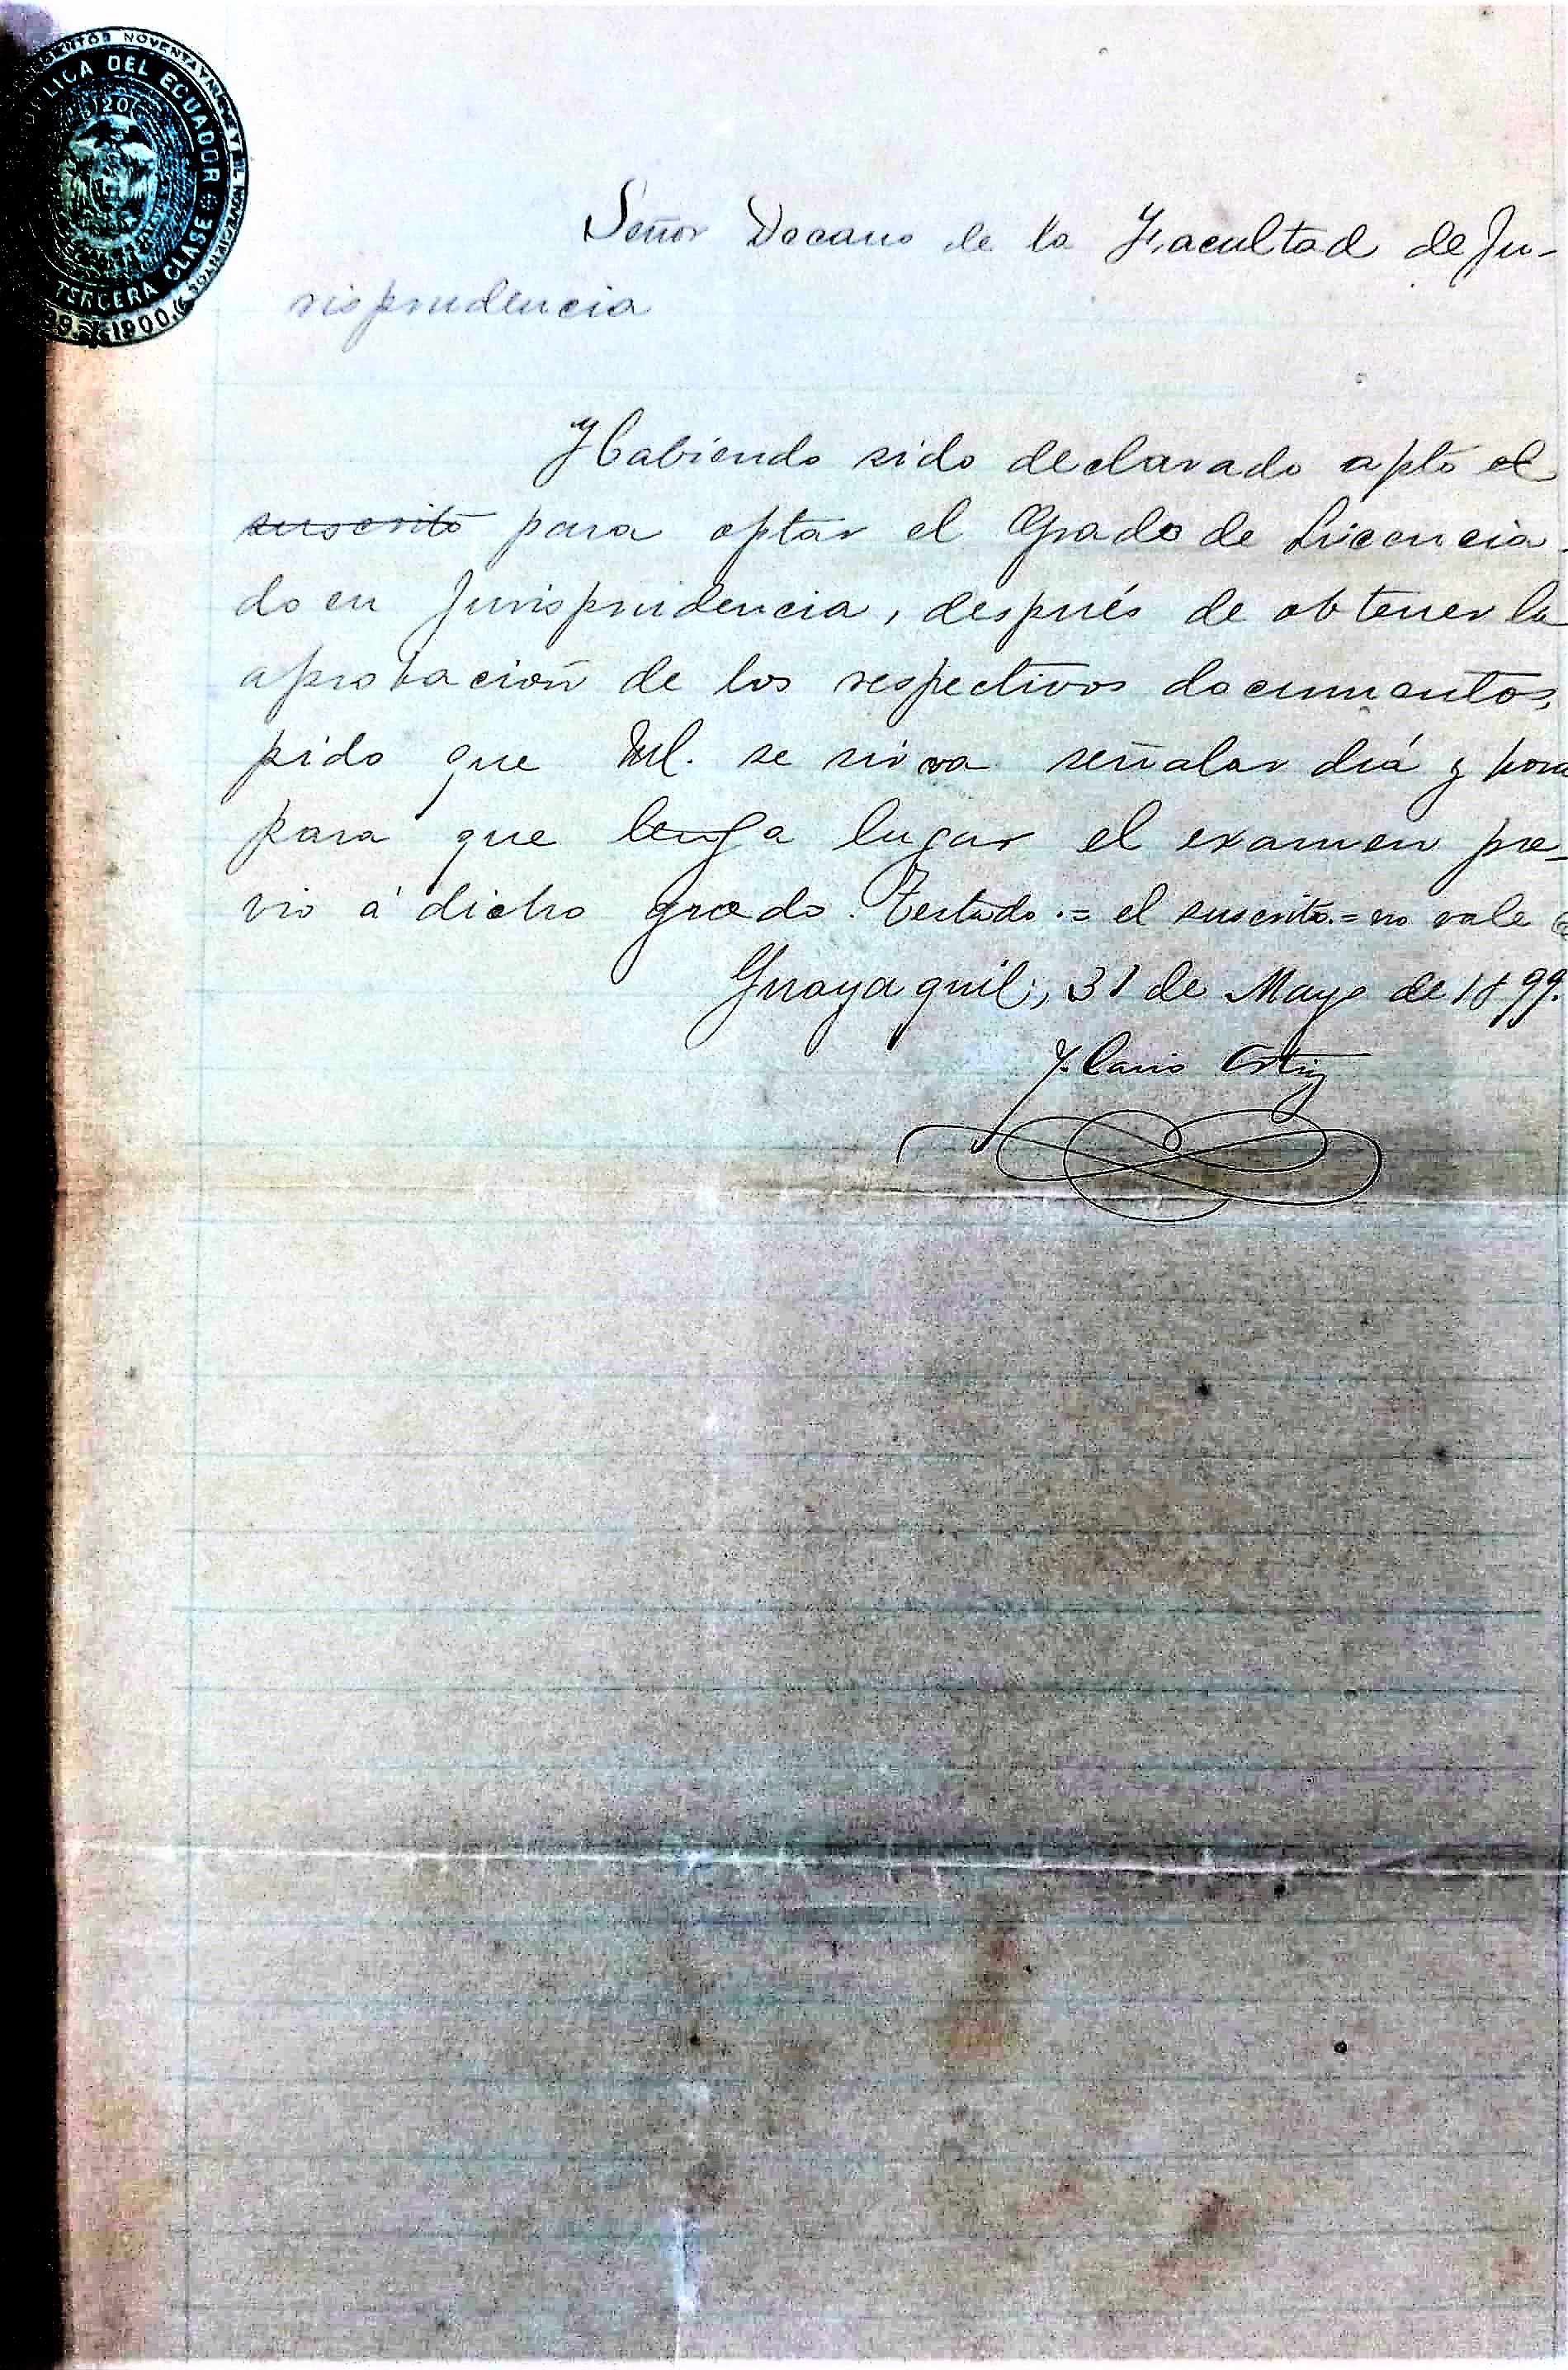 NOVENTA Y NUEVE Y MIL NOVECIENTOS
REPÚBLICA DEL ECUADOR
TERCERA CLASE
1900
Señor Decano de la Facultad de Ju-
risprudencia
Habiendo sido declarado apto el
suscrito para optar el Grado de Licencia-
do en Jurisprudencia, después de obtener la
aprobación de los respectivos documentos,
pido que Ud. se sirva señalar día y hora
para que tenga lugar el examen pre-
vio á dicho grado. Testado.= el suscrito.= no vale
Guayaquil, 31 de Mayo de 1899.
Ortiz